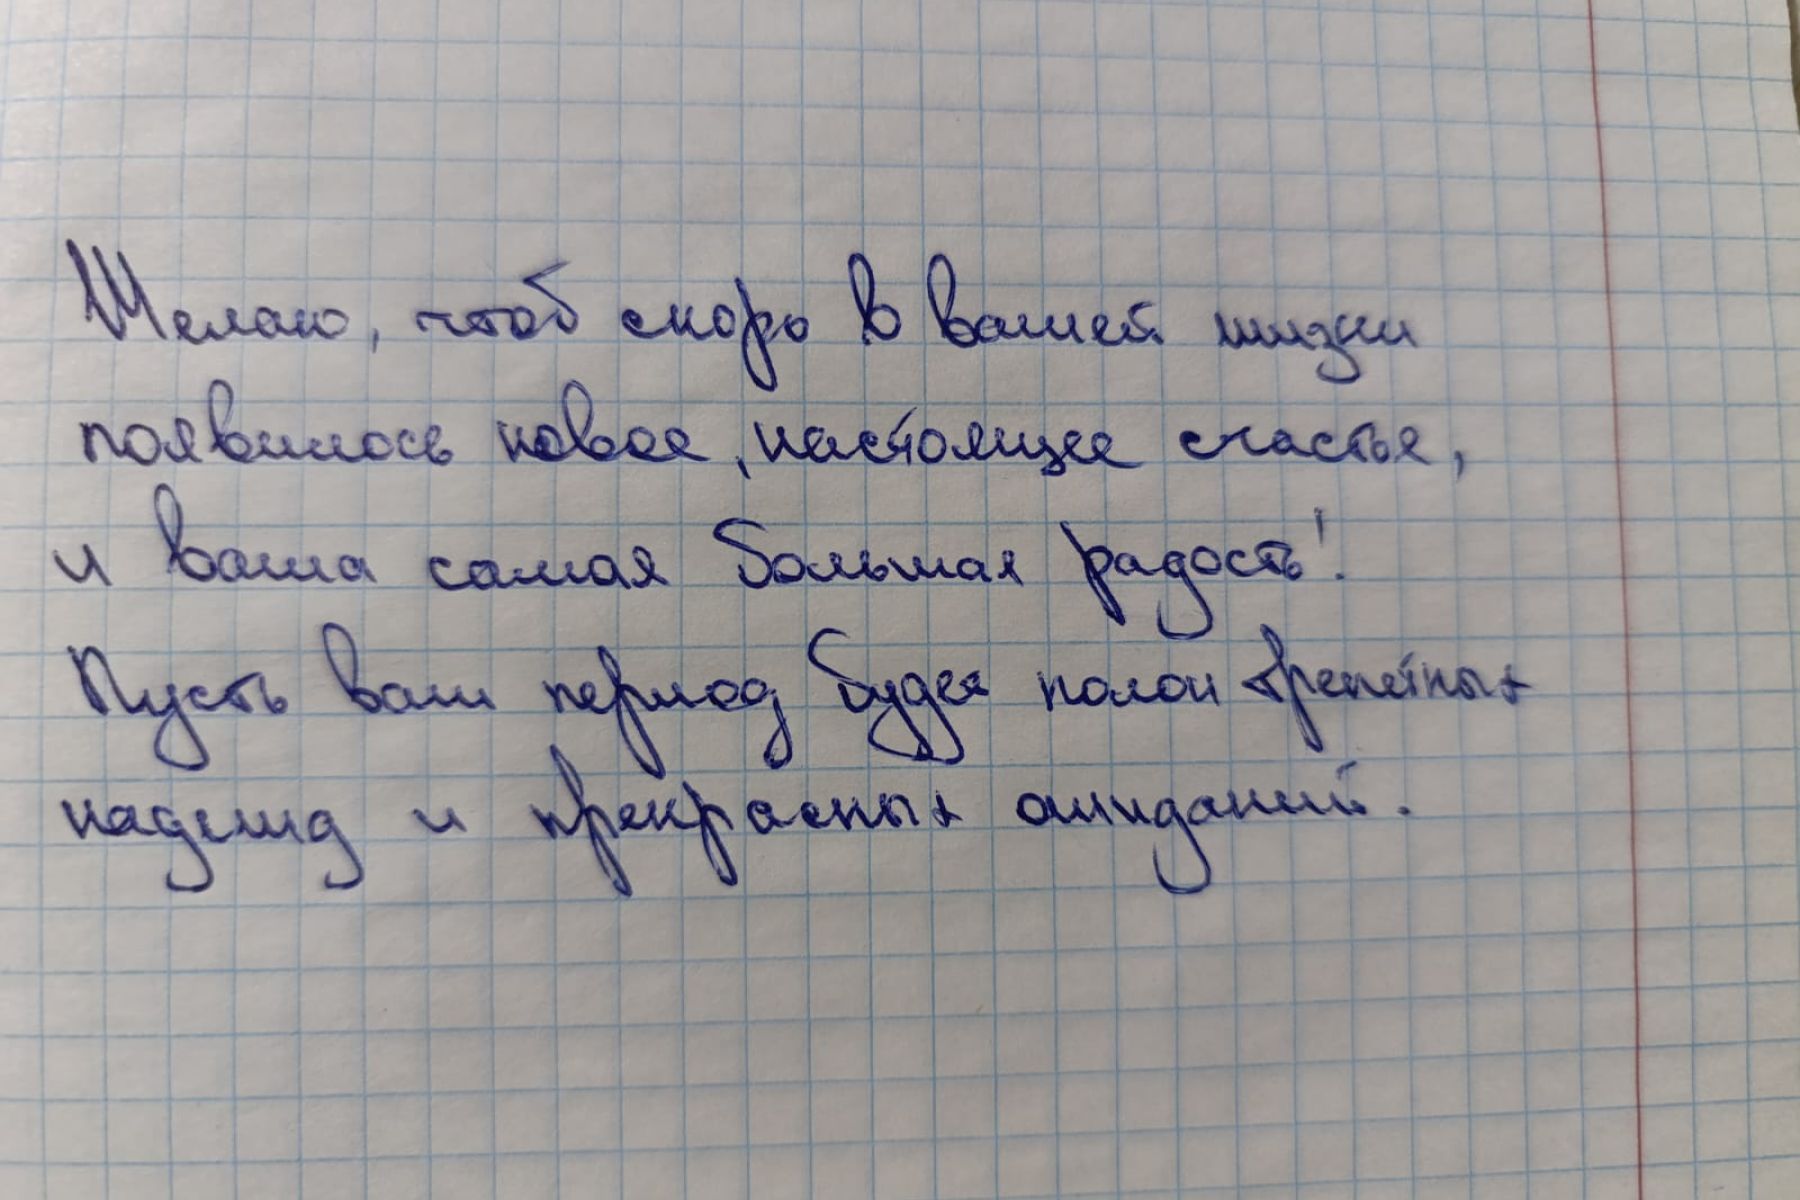 Желаю, чтоб скоро в вашей жизни
появилось новое, настоящее счастье,
и ваша самая большая радость!
Пусть ваш период будет полон трепетных
надежд и прекрасных ожиданий.